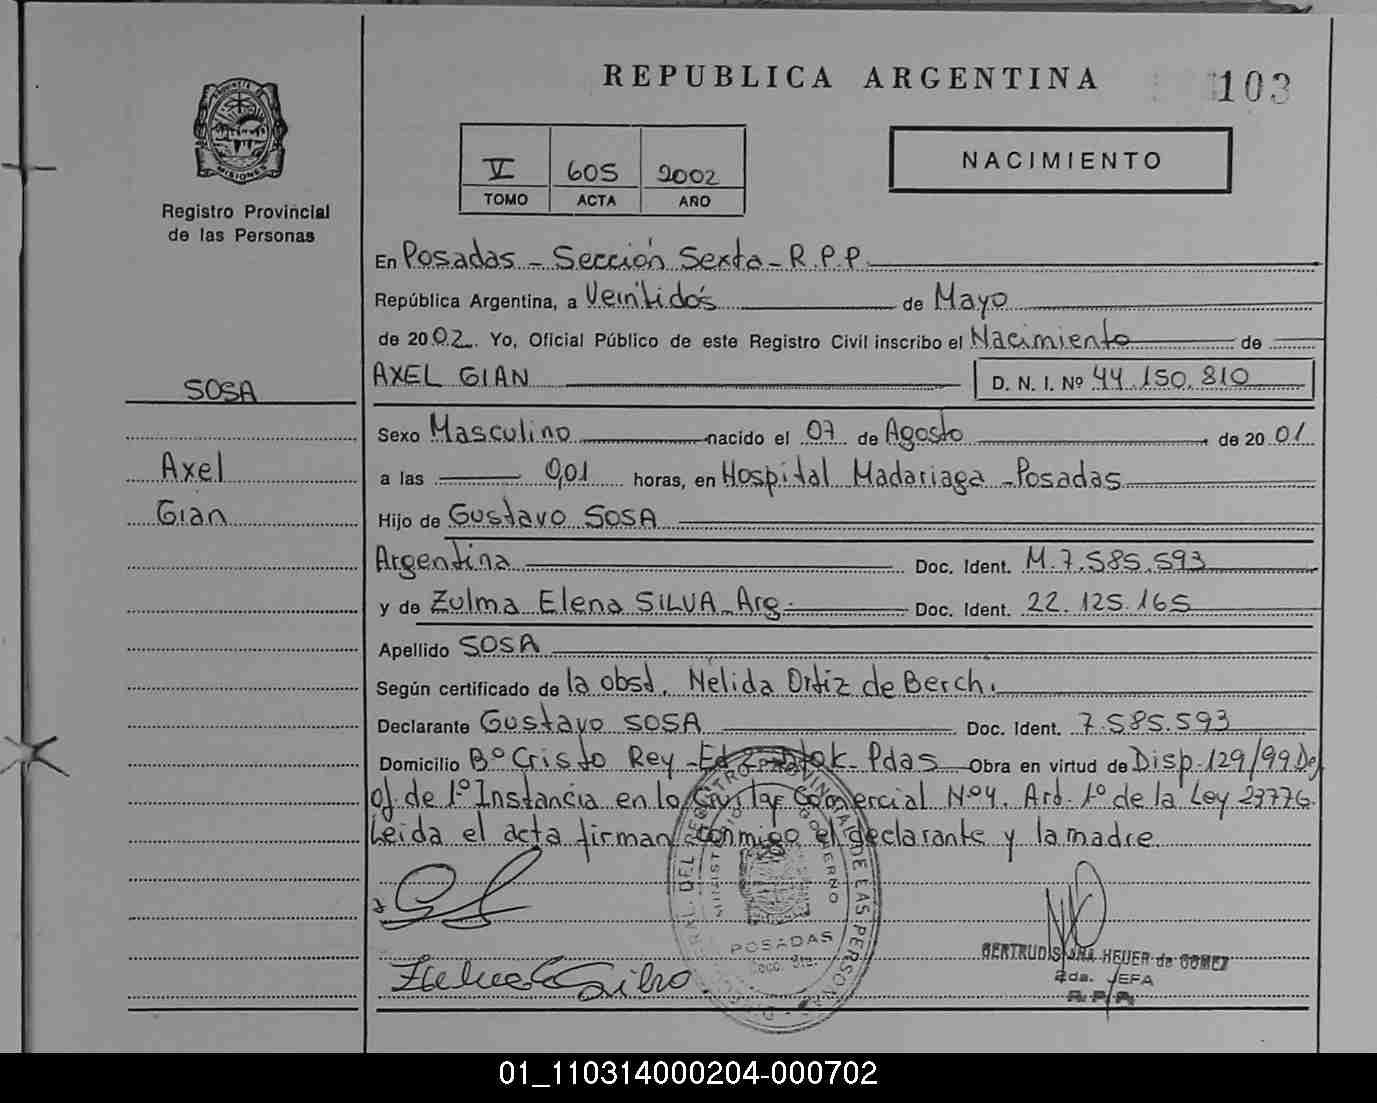 REPUBLICA ARGENTINA
103
PROVINCIA DE MISIONES
Registro Provincial
de las Personas
V 605 2002
TOMO ACTA AÑO
NACIMIENTO
SOSA
Axel
Gian
En Posadas - Sección Sexta - R.P.P.
República Argentina, a Veintidós de Mayo
de 2002. Yo, Oficial Público de este Registro Civil inscribo el Nacimiento de
AXEL GIAN D. N. I. Nº 44.150.810
Sexo Masculino nacido el 07 de Agosto de 2001
a las 0,01 horas, en Hospital Madariaga - Posadas
Hijo de Gustavo SOSA
Argentina Doc. Ident. M.7.585.593
y de Zulma Elena SILVA - Arg. Doc. Ident. 22.125.165
Apellido SOSA
Según certificado de la obst. Nélida Ortiz de Berchi
Declarante Gustavo SOSA Doc. Ident. 7.585.593
Domicilio Bº Cristo Rey - Ed 2 - Pdas Obra en virtud de Disp. 129/99 De
of. de 1º Instancia en lo Civil y Comercial Nº 4. Art. 1º de la Ley 23776.
Leida el acta firman conmigo el declarante y la madre
DIRECCION GENERAL DEL REGISTRO PROVINCIAL DE LAS PERSONAS
MINISTERIO GOBIERNO
POSADAS
Secc. 6ta.
GERTRUDIS ANA HEUER de GOMEZ
2da. JEFA
R.P.P.
01_110314000204-000702